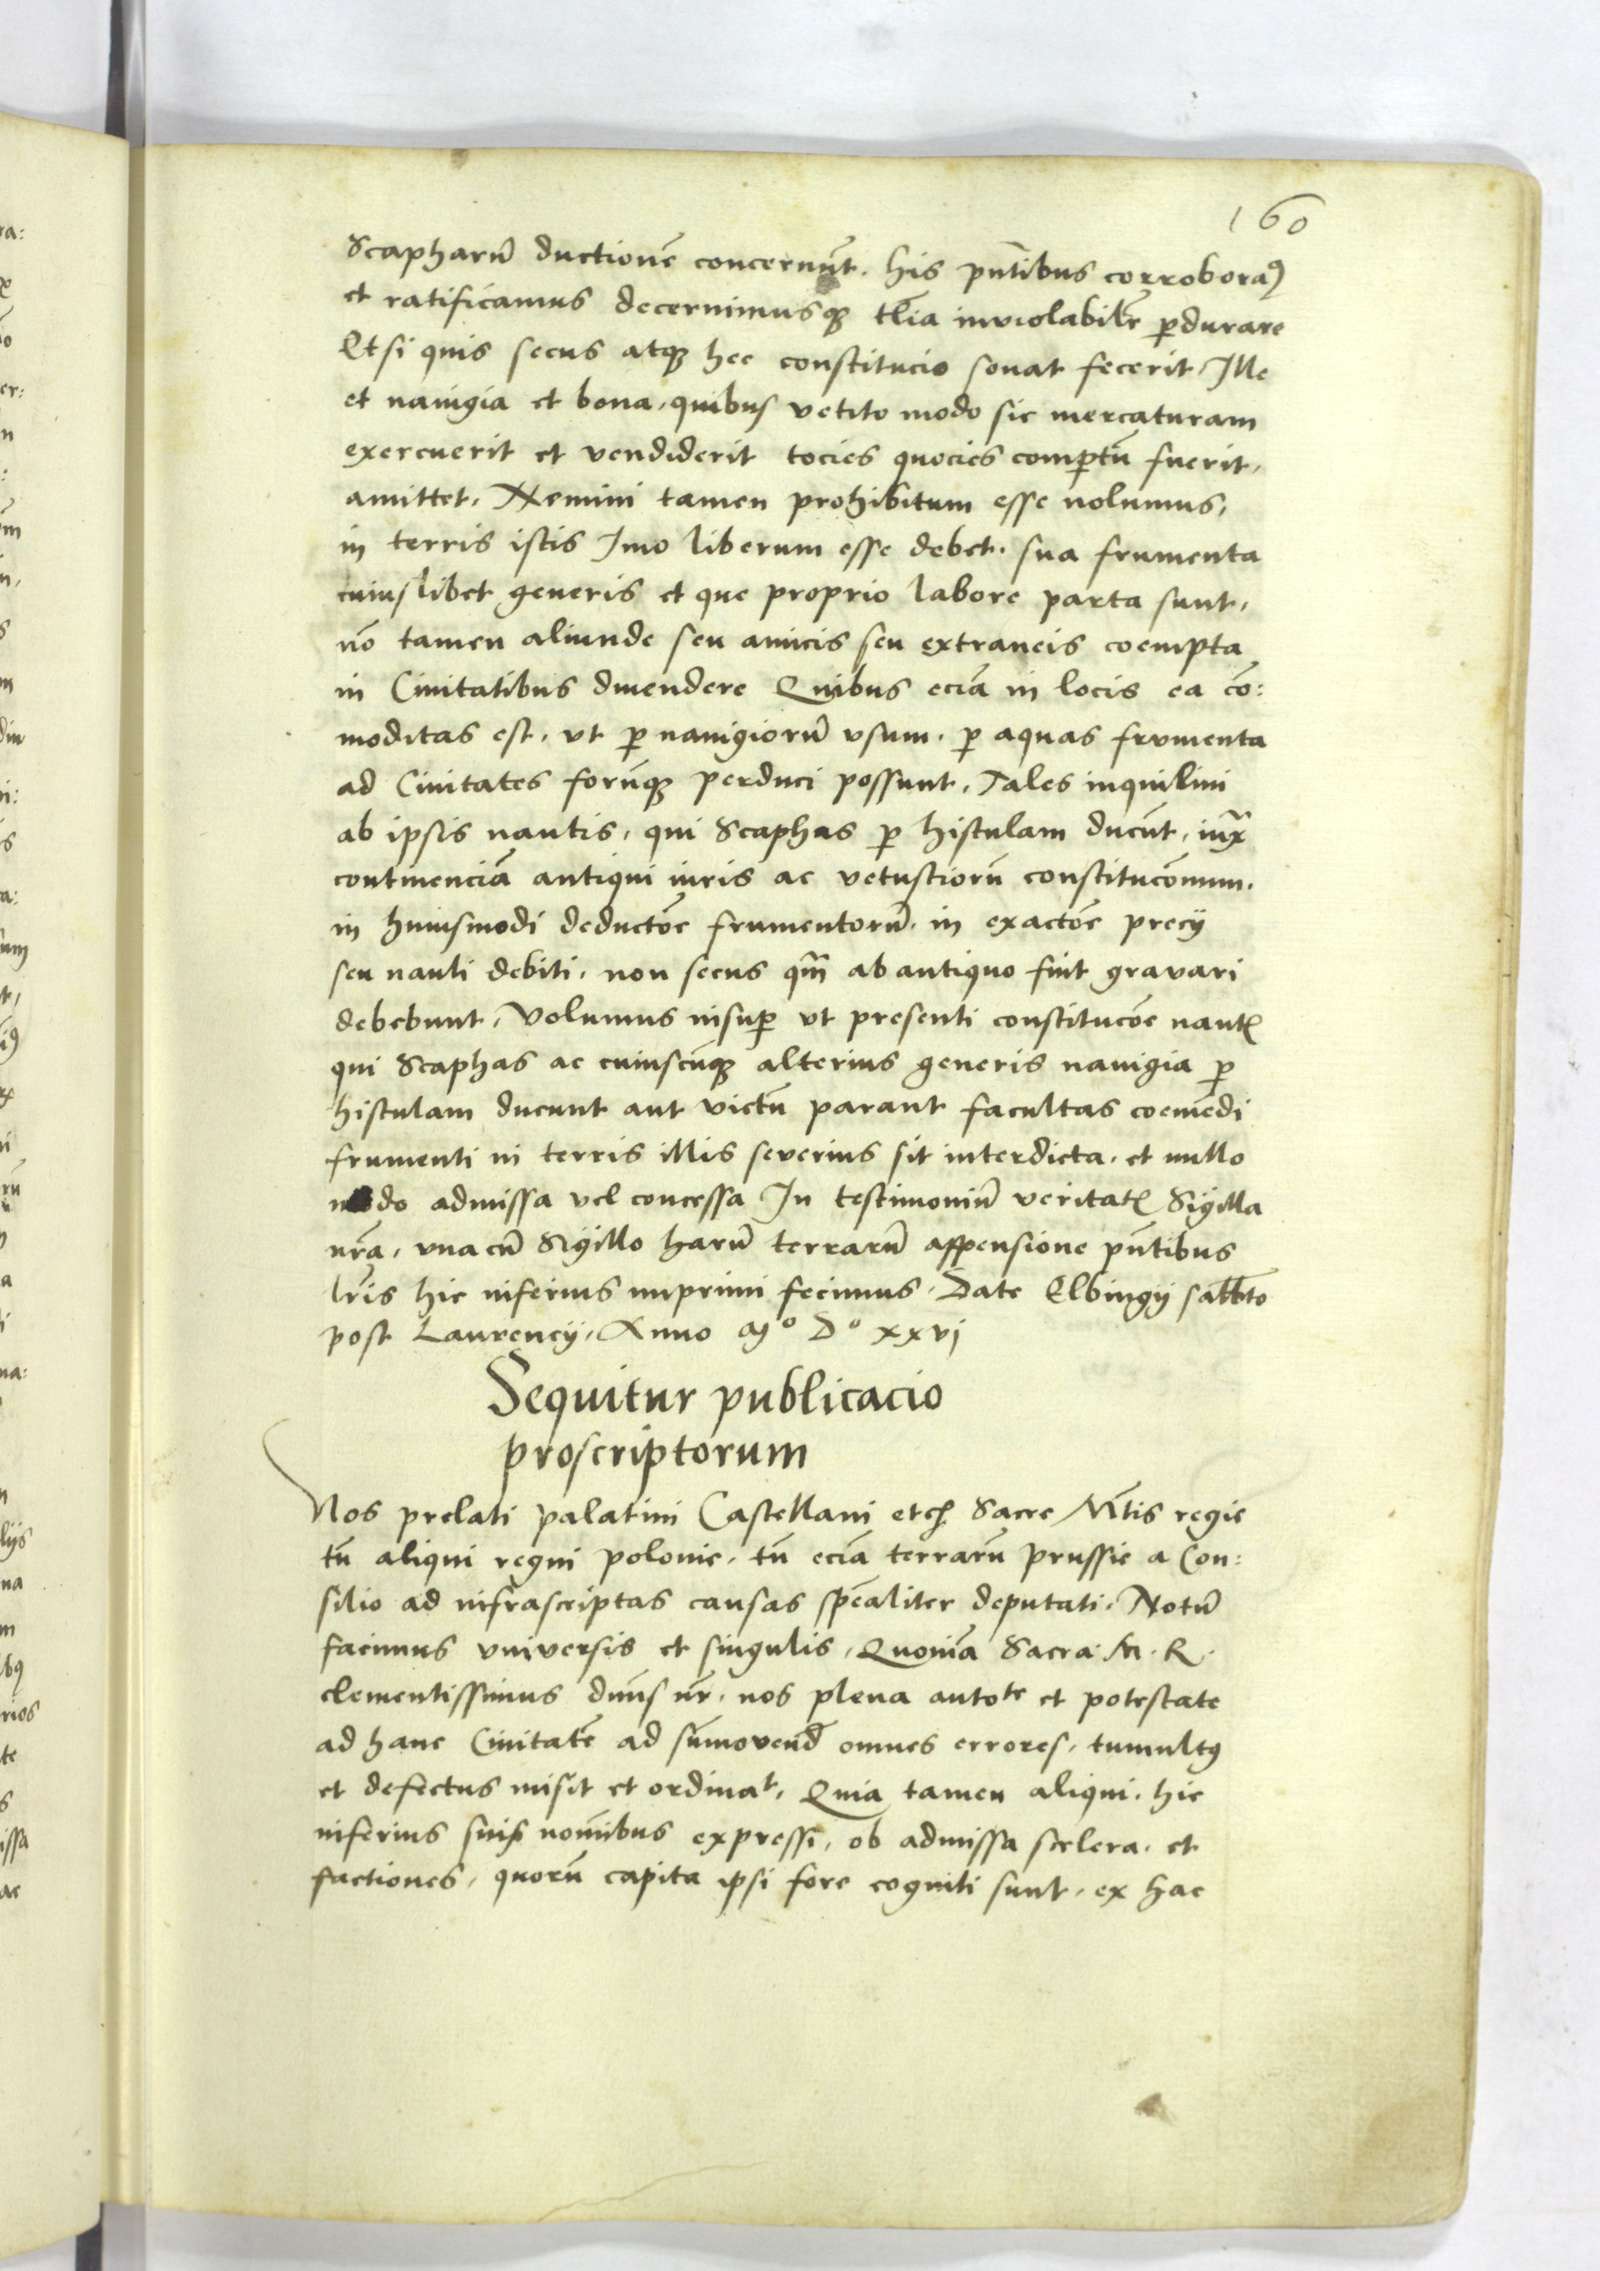 160
Scapharū ductionē concernūt. his pn̄tibus corroboraꝰ
et ratificamus decernimusqꝫ tl̄ia inviolabilr̄ ꝑdurare
Et si quis secus atqꝫ hec constitucio sonat fecerit, Ille
et nauigia et bona, quibus vetito modo sic mercaturam
exercuerit et vendiderit tocies quocies comꝑtū fuerit,
amittet. Nemini tamen prohibitum esse nolumus,
in terris istis Imo liberum esse debet. sua frumenta
cuiuslibet generis et que proprio labore parta sunt,
nō tamen aliunde seu amicis seu extraneis coempta
in Ciuitatibus diuendere Quibus eciā in locis ea cō:
moditas est, vt ꝑ nauigiorū vsum, ꝑ aquas frumenta
ad Ciuitates forūqꝫ perduci possunt, Tales inquilini
ab ipsis nautis, qui Scaphas ꝑ histulam ducūt, iux̄
continenciā antiqui iuris ac vetustiorū constitucōnum.
in huiusmodi deductōe frumentorū, in exactōe precij
seu nauli debiti, non secus qm̄ ab antiquo fuit gravari
debebunt, Volumus insuꝑ vt presenti constitucōe nautꝭ
qui Scaphas ac cuiuscūqꝫ alterius generis nauigia ꝑ
histulam ducunt aut victū parant facultas coemēdi
frumenti in terris illis severius sit interdicta, et nullo
modo admissa vel concessa In testimoniū veritatꝭ Sigilla
nr̄a, vna cū Sigillo harū terrarū appensione pn̄tibus
lr̄is hic inferius imprimi fecimus. Date Elbingij sabbto
post Laurencij, Anno Mº Dº xxvj
Sequitur publicacio
proscriptorum
Nos prelati palatini Castellani etcꝫ Sacre Mtis regie
tū aliqui regni polonie, tū eciā terrarū prussie a Con:
silio ad infrascriptas causas spēaliter deputati, Notū
facimus vniversis et singulis, Quoniā Sacra. M. R.
clementissimus dn̄s nr̄, nos plena autote et potestate
ad hanc Ciuitatē ad sūmovend̄ omnes errores, tumultꝰ
et defectus misit et ordinat, Quia tamen aliqui, hic
inferius suis noīnibus expressi, ob admissa scelera, et
factiones, quorū capita ipsi fore cogniti sunt, ex hac